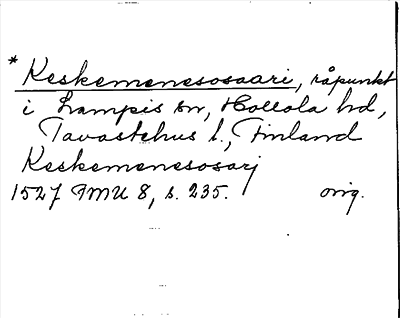 * Keskemenesosaari, råpunkt
i Lampis sn, Hollola hd,
Tavastehus l., Finland
Keskemenesosarj
1527 FMU 8, s. 235. orig.